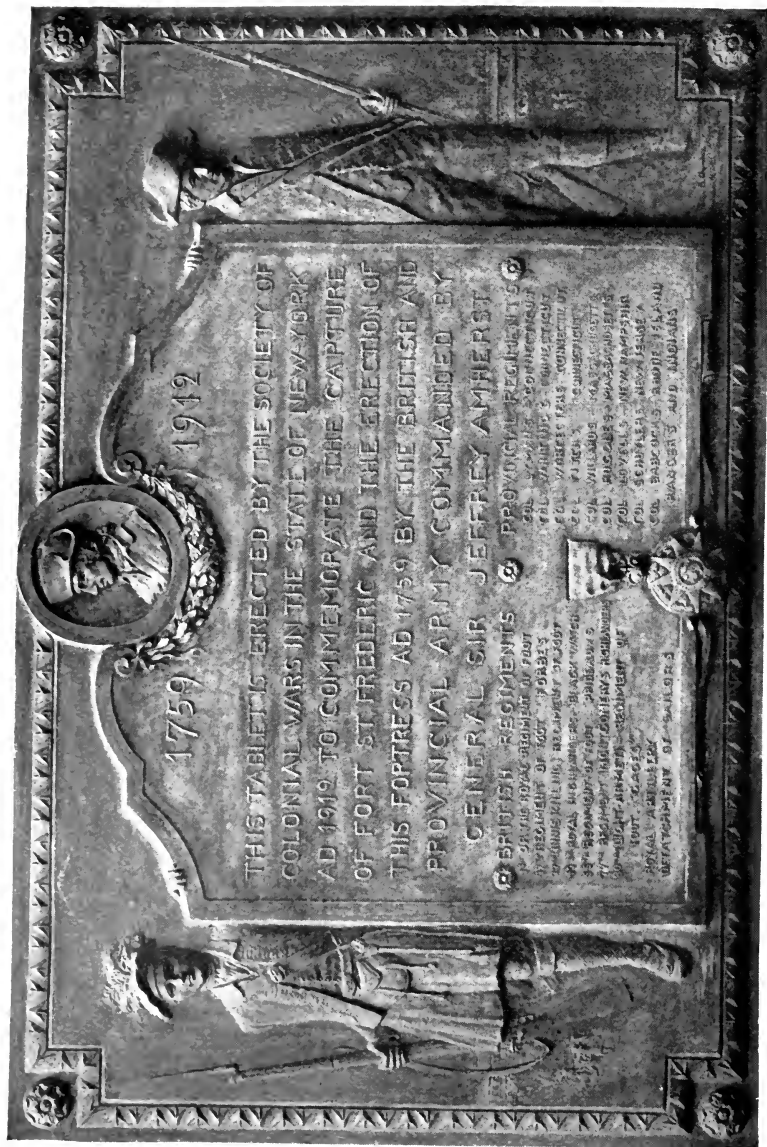 1759 1912
THIS TABLET IS ERECTED BY THE SOCIETY OF
COLONIAL WARS IN THE STATE OF NEW YORK
AD 1912 TO COMMEMORATE THE CAPTURE
OF FORT ST FREDERIC AND THE ERECTION OF
THIS FORTRESS AD 1759 BY THE BRITISH AND
PROVINCIAL ARMY COMMANDED BY
GENERAL SIR JEFFREY AMHERST
BRITISH REGIMENTS
OR THE ROYAL REGIMENT OF FOOT
REGIMENT OF FOOT FORBES
REGIMENT OF FOOT
ROYAL HIGHLANDERS BLACK WATCH
REGIMENT OF FOOT PRIDEAUX'S
REGIMENT MONTGOMERY'S HIGHLANDERS
LIGHT ARMED REGIMENT OF
FOOT GAGES
ROYAL ARTILLERY
DETACHMENT OF SAILORS
PROVINCIAL REGIMENTS
COL LYMAN'S CONNECTICUT
COL WHITING'S CONNECTICUT
COL CONNECTICUT
COL FITCH'S CONNECTICUT
COL WILLARDS MASSACHUSETTS
COL RUGGLES MASSACHUSETTS
COL LOVELLS NEW HAMPSHIRE
COL SCHUYLERS NEW JERSEY
COL BABCOCKS RHODE ISLAND
RANGERS AND INDIANS